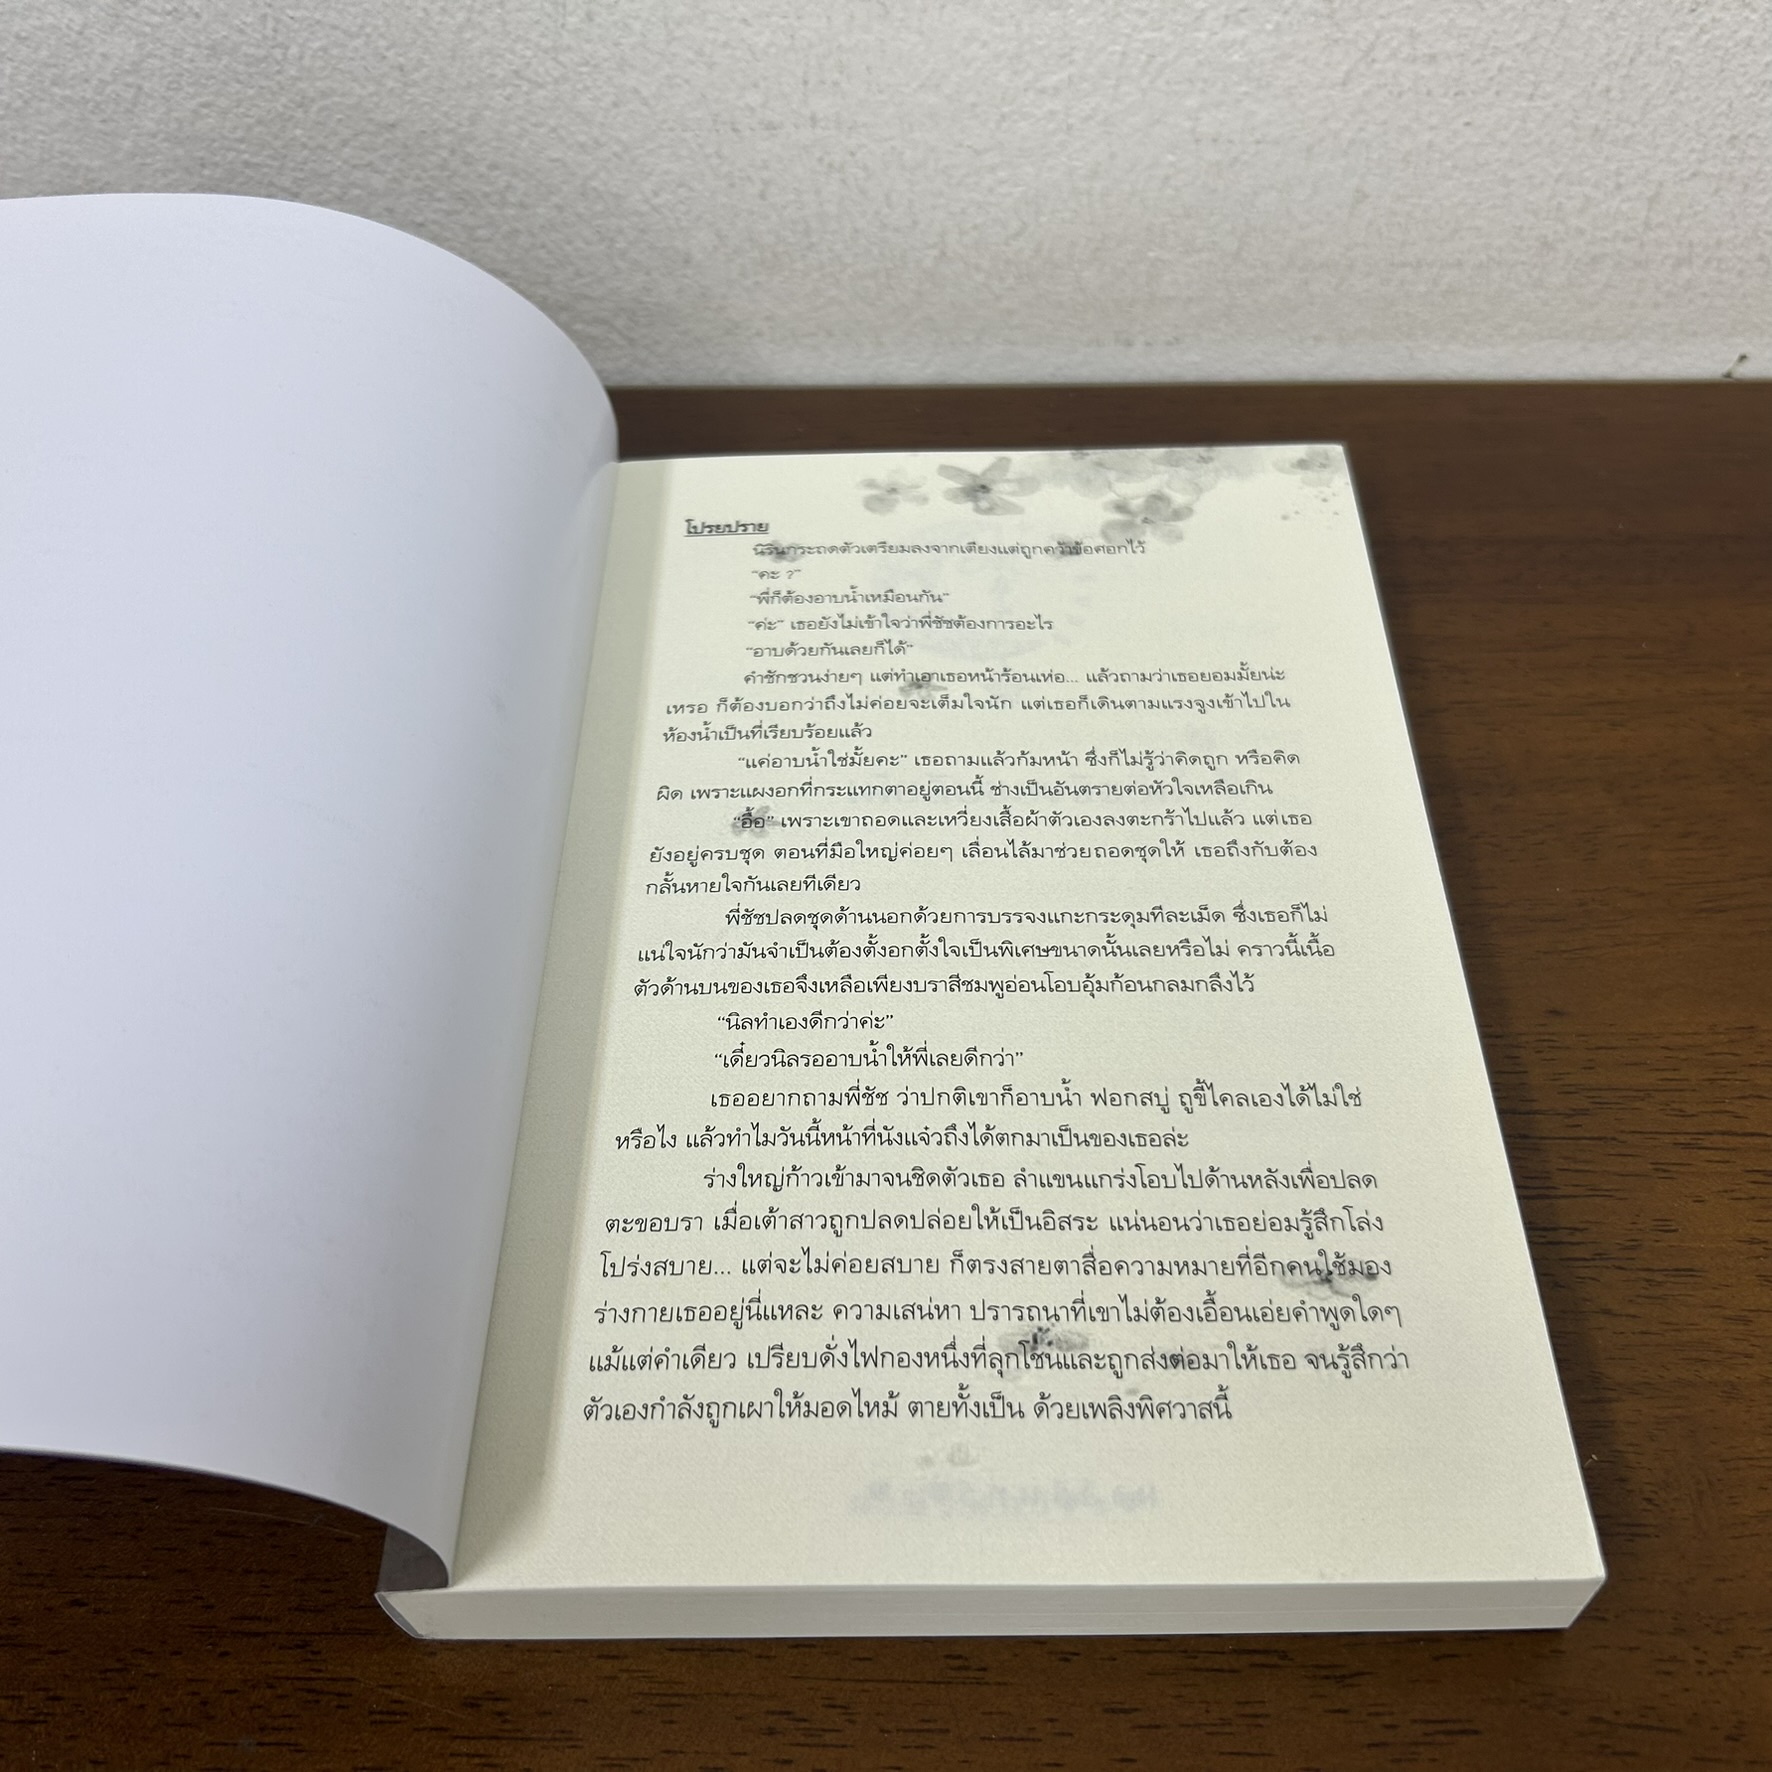 โปรยปราย
นิรินกระถดตัวเตรียมลงจากเตียงแต่ถูกคว้าข้อศอกไว้
“คะ ?”
“พี่ก็ต้องอาบน้ำเหมือนกัน”
“ค่ะ” เธอยังไม่เข้าใจว่าพี่ชัชต้องการอะไร
“อาบด้วยกันเลยก็ได้”
คำชักชวนง่ายๆ แต่ทำเอาเธอหน้าร้อนเห่อ... แล้วถามว่าเธอยอมมั้ยน่ะ
เหรอ ก็ต้องบอกว่าถึงไม่ค่อยจะเต็มใจนัก แต่เธอก็เดินตามแรงจูงเข้าไปใน
ห้องน้ำเป็นที่เรียบร้อยแล้ว
“แค่อาบน้ำใช่มั้ยคะ” เธอถามแล้วก้มหน้า ซึ่งก็ไม่รู้ว่าคิดถูก หรือคิด
ผิด เพราะแผงอกที่กระแทกตาอยู่ตอนนี้ ช่างเป็นอันตรายต่อหัวใจเหลือเกิน
“อื้อ” เพราะเขาถอดและเหวี่ยงเสื้อผ้าตัวเองลงตะกร้าไปแล้ว แต่เธอ
ยังอยู่ครบชุด ตอนที่มือใหญ่ค่อยๆ เลื่อนไล้มาช่วยถอดชุดให้ เธอถึงกับต้อง
กลั้นหายใจกันเลยทีเดียว
พี่ชัชปลดชุดด้านนอกด้วยการบรรจงแกะกระดุมทีละเม็ด ซึ่งเธอก็ไม่
แน่ใจนักว่ามันจำเป็นต้องตั้งอกตั้งใจเป็นพิเศษขนาดนั้นเลยหรือไม่ คราวนี้เนื้อ
ตัวด้านบนของเธอจึงเหลือเพียงบราสีชมพูอ่อนโอบอุ้มก้อนกลมกลึงไว้
“นิลทำเองดีกว่าค่ะ”
“เดี๋ยวนิลรออาบน้ำให้พี่เลยดีกว่า”
เธออยากถามพี่ชัช ว่าปกติเขาก็อาบน้ำ ฟอกสบู่ ถูขี้ไคลเองได้ไม่ใช่
หรือไง แล้วทำไมวันนี้หน้าที่นังแจ๋วถึงได้ตกมาเป็นของเธอล่ะ
ร่างใหญ่ก้าวเข้ามาจนชิดตัวเธอ ลำแขนแกร่งโอบไปด้านหลังเพื่อปลด
ตะขอบรา เมื่อเต้าสาวถูกปลดปล่อยให้เป็นอิสระ แน่นอนว่าเธอย่อมรู้สึกโล่ง
โปร่งสบาย... แต่จะไม่ค่อยสบาย ก็ตรงสายตาสื่อความหมายที่อีกคนใช้มอง
ร่างกายเธออยู่นี่แหละ ความเสน่หา ปรารถนาที่เขาไม่ต้องเอื้อนเอ่ยคำพูดใดๆ
แม้แต่คำเดียว เปรียบดั่งไฟกองหนึ่งที่ลุกโชนและถูกส่งต่อมาให้เธอ จนรู้สึกว่า
ตัวเองกำลังถูกเผาให้มอดไหม้ ตายทั้งเป็น ด้วยเพลิงพิศวาสนี้